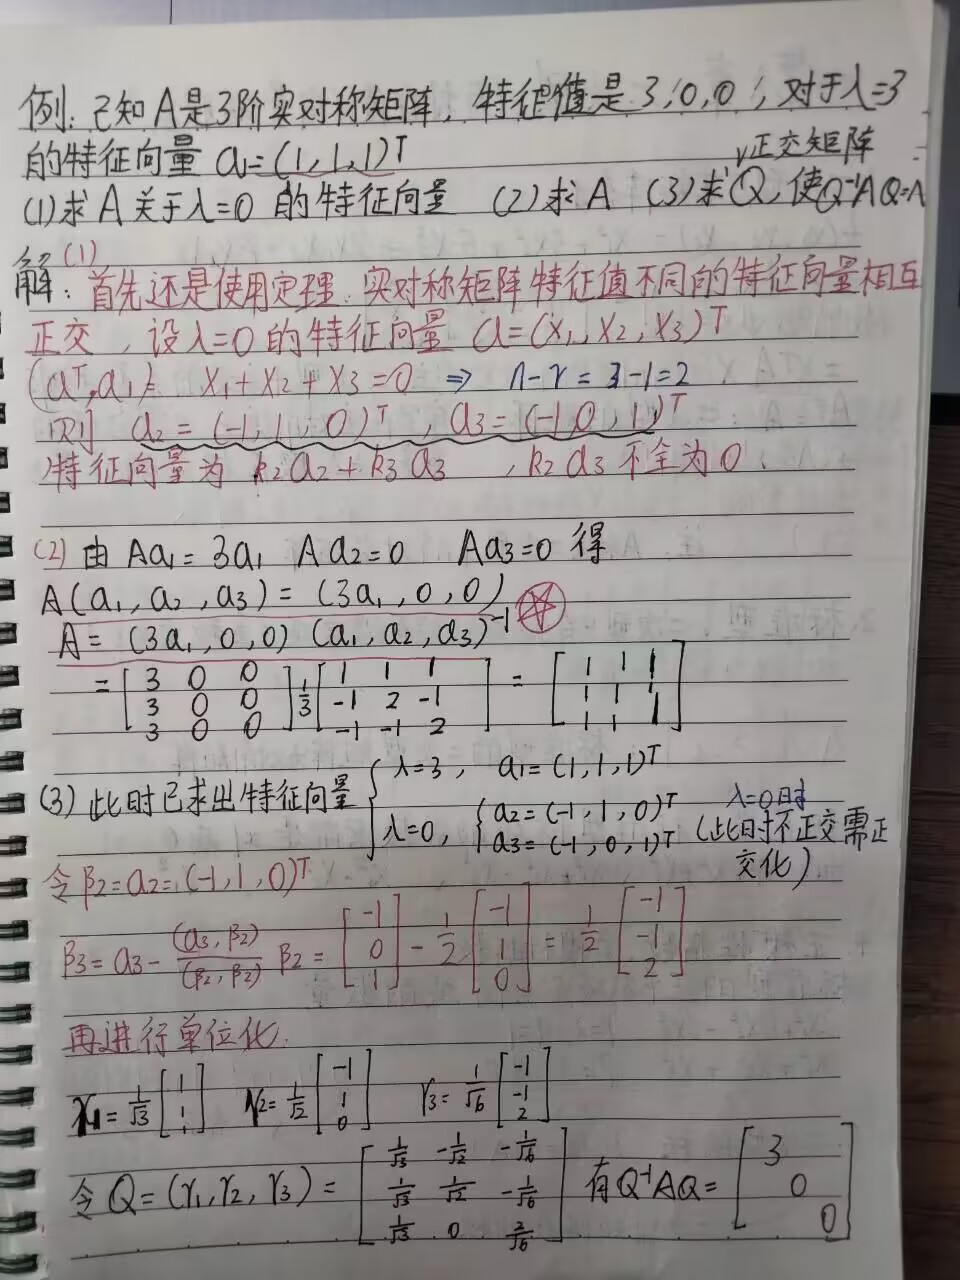 例: 已知A是3阶实对称矩阵, 特征值是3,0,0, 对于λ=3
的特征向量 a₁=(1,1,1)ᵀ
正交矩阵
(1)求A关于λ=0的特征向量 (2)求A (3)求Q, 使Q⁻¹AQ=Λ
解:(1)
首先还是使用定理. 实对称矩阵特征值不同的特征向量相互
正交, 设λ=0的特征向量 a=(x₁, x₂, x₃)ᵀ
(aᵀ, a₁)= x₁+x₂+x₃=0 ⇒ n-r=3-1=2
则 a₂=(-1,1,0)ᵀ, a₃=(-1,0,1)ᵀ
特征向量为 k₂a₂+k₃a₃, k₂a₃不全为0.
(2) 由 Aa₁=3a₁ Aa₂=0 Aa₃=0 得
A(a₁, a₂, a₃) = (3a₁, 0, 0)
A = (3a₁, 0, 0) (a₁, a₂, a₃)⁻¹
= [3 0 0; 3 0 0; 3 0 0] 1/3 [1 1 1; -1 2 -1; -1 -1 2] = [1 1 1; 1 1 1; 1 1 1]
(3) 此时已求出特征向量 { λ=3, a₁=(1,1,1)ᵀ
λ=0, { a₂=(-1,1,0)ᵀ
a₃=(-1,0,1)ᵀ
λ=0时
(此时不正交需正
交化)
令 β₂=a₂=(-1,1,0)ᵀ
β₃=a₃- (a₃, β₂)/(β₂, β₂) β₂ = [-1; 0; 1] - 1/2 [-1; 1; 0] = 1/2 [-1; -1; 2]
再进行单位化.
γ₁= 1/√3 [1; 1; 1] γ₂= 1/√2 [-1; 1; 0] γ₃= 1/√6 [-1; -1; 2]
令 Q=(γ₁, γ₂, γ₃) = [1/√3 -1/√2 -1/√6; 1/√3 1/√2 -1/√6; 1/√3 0 2/√6] 有Q⁻¹AQ= [3 0 0]